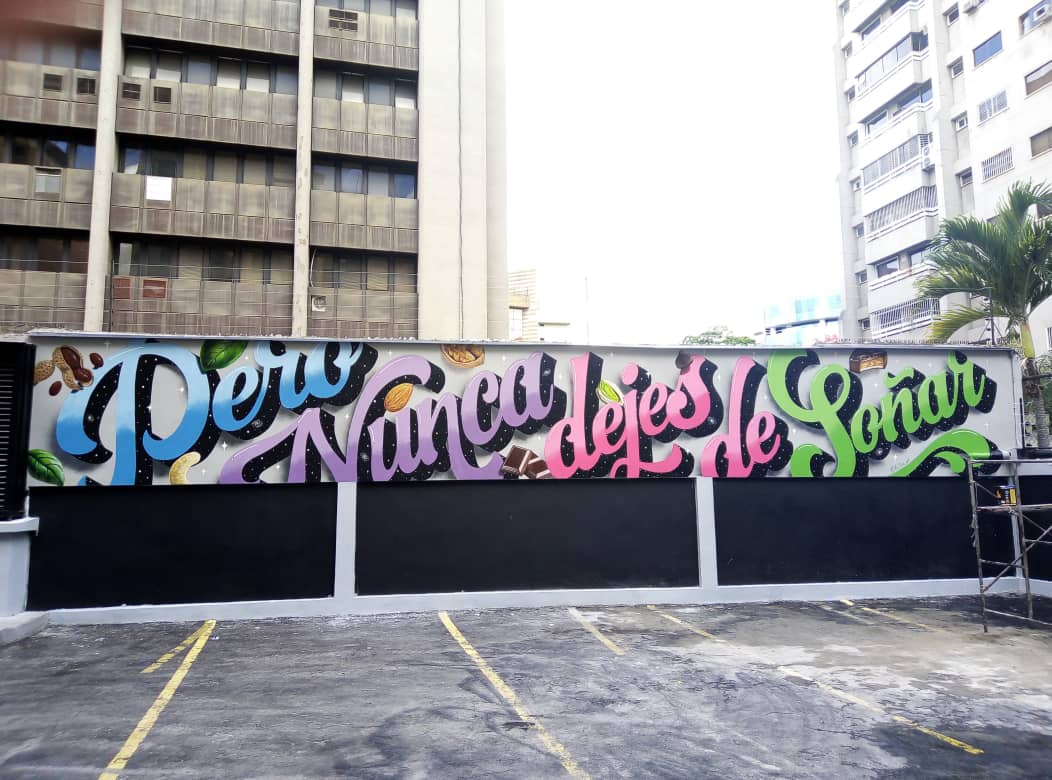 Pero Nunca dejes de Soñar